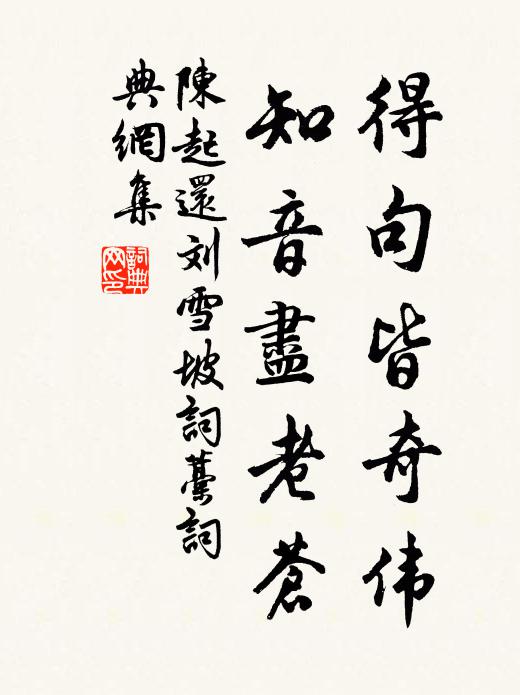 得句皆奇伟
知音盡老蒼
陳起還刘雪坡詞藳詞
典網集
詞典
网印